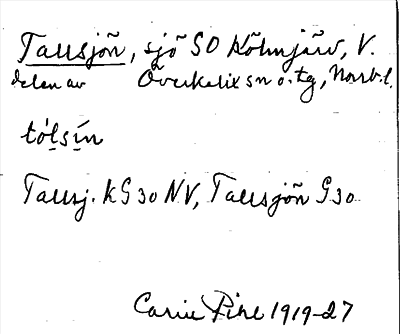 Tallsjön, sjö SO Kölmjärv, V.
delen av Överkalix sn o. tg, Norrb. l.
tólsı̇́n
Tallsj. KG 30 NV, Tallsjön G 30
Carin Pihl 1919-27